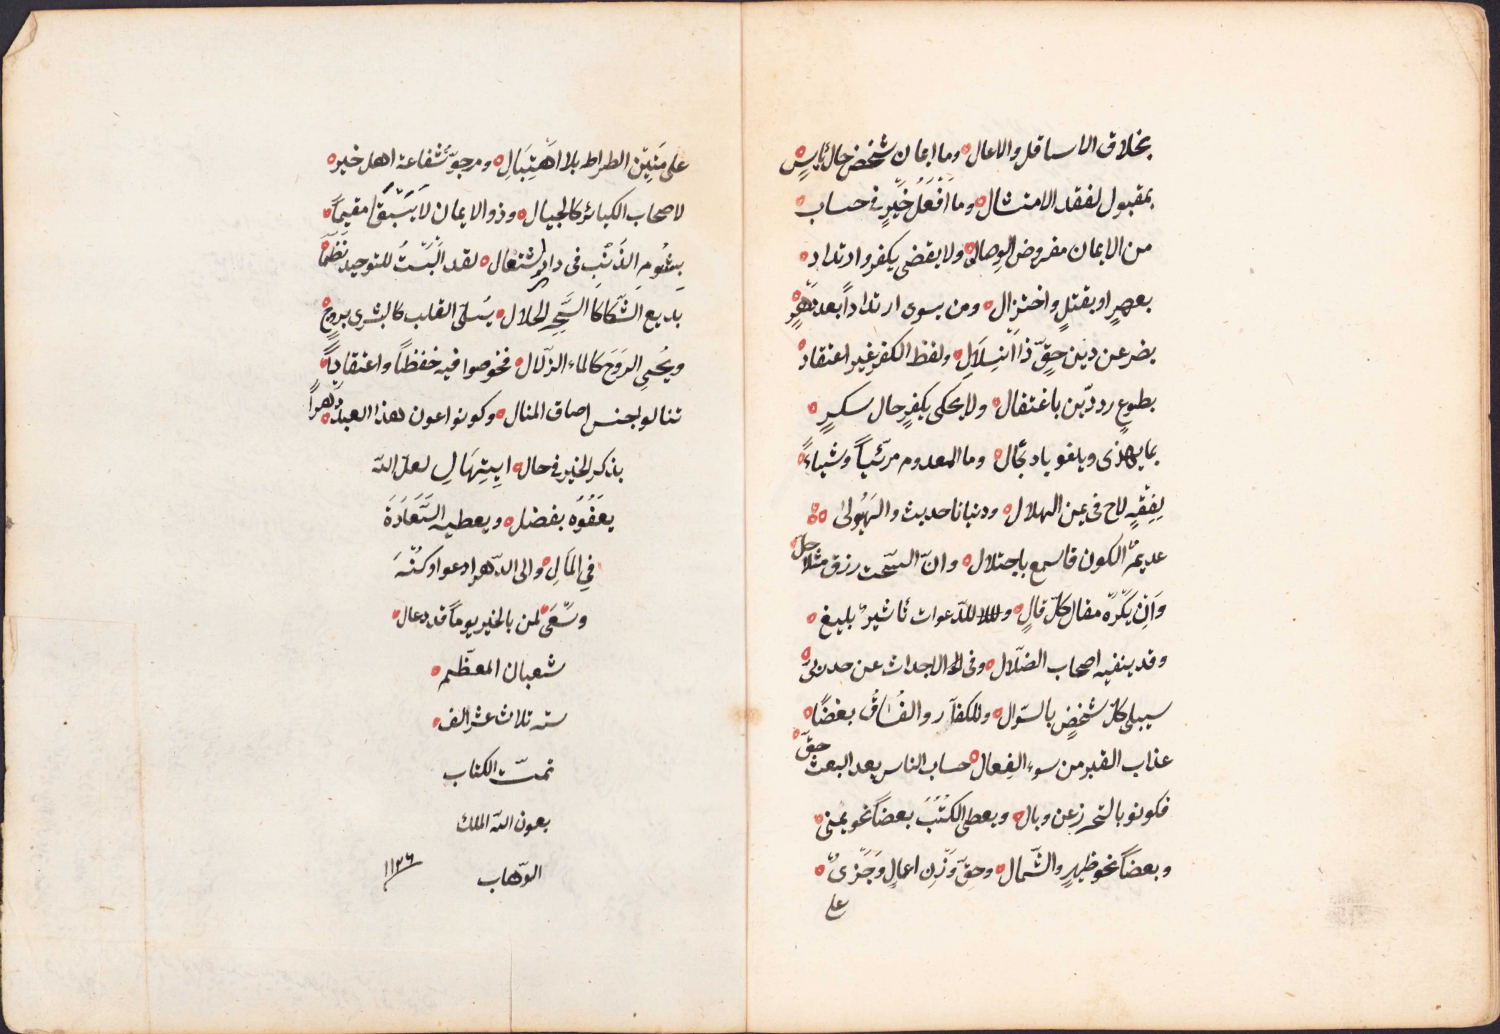 بخلاق الاسافل والاعال ه وما ايمان شخص حال يأس ه
بمقبول لفقد الامتثال ه وما افعل خير في حساب ه
من الايمان مفروض الوصال ه ولا يقضى بكفر وارتداد ه
بعهر او بقتل واختزال ه ومن ينوى ارتدادا بعد دهر ه
يضر عن دين حق ذا انسلال ه ولفظ الكفر غير اعتقاد ه
بطوع رد دين باغتفال ه ولا يحكى بكفر حال سكر ه
بما يهذى ويلغو بادنجال ه وما المعدوم مرئيا وشياء ه
لفقه لاح في عين الهلال ه ودنيانا حديث والهيولى ه
عديم الكون فاسمع باجتلال ه وان السحت رزق مثلا حل ه
وان يكره مقال كل قال ه وللدعوات تاثير بليغ ه
وقد ينفيه اصحاب الضلال ه وفى الاجداث عن حدث ربى ه
سيبلى كل شخص بالسوال ه وللكفار والفساق بغضا ه
عذاب القبر من سوء الفعال ه حساب الناس بعد البعث حق ه
فكونو بالتحرز عن وبال ه ويعطى الكتب بعضا نحو يمنى ه
وبعضا نحو ظهر والشمال ه وحق وزن اعمال وجرى ه
على
على متين الطراط بلا اهتبال ه ومرجو شفاعة اهل خير ه
لاصحاب الكبائر كالجبال ه وذو الايمان لا يبقى مقيما ه
بشوم الذنب فى دار اشتعال ه لقد البست للتوحيد نظما ه
بديع الشكل كا السحر الحلال ه يسلى القلب كا لبشرى بروح ه
ويحيى الروح كالماء الزلال ه فخوصوا فيه حفظا واعتقادا ه
تنالو لجنس اصاق المنال ه وكونو اعون هذا العبد دهرا ه
بذكر الخير فى حال ه ابتهال لعل الله
يعفوه بفضل ه ويعطيه السعادة
فى المآل ه والى الدهر ادعوا وكنه
وسعى ه لمن بالخير يوما قد دعال ه
شعبان المعظم ه
سنه ثلاث عشر الف ه
تمت الكتاب
بعون الله الملك
الوهاب
١١٢٦